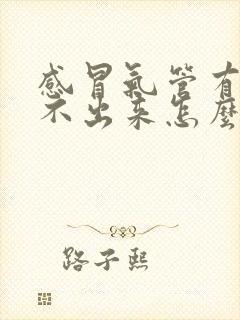 感冒氣管有
不出来怎麼
路子熙